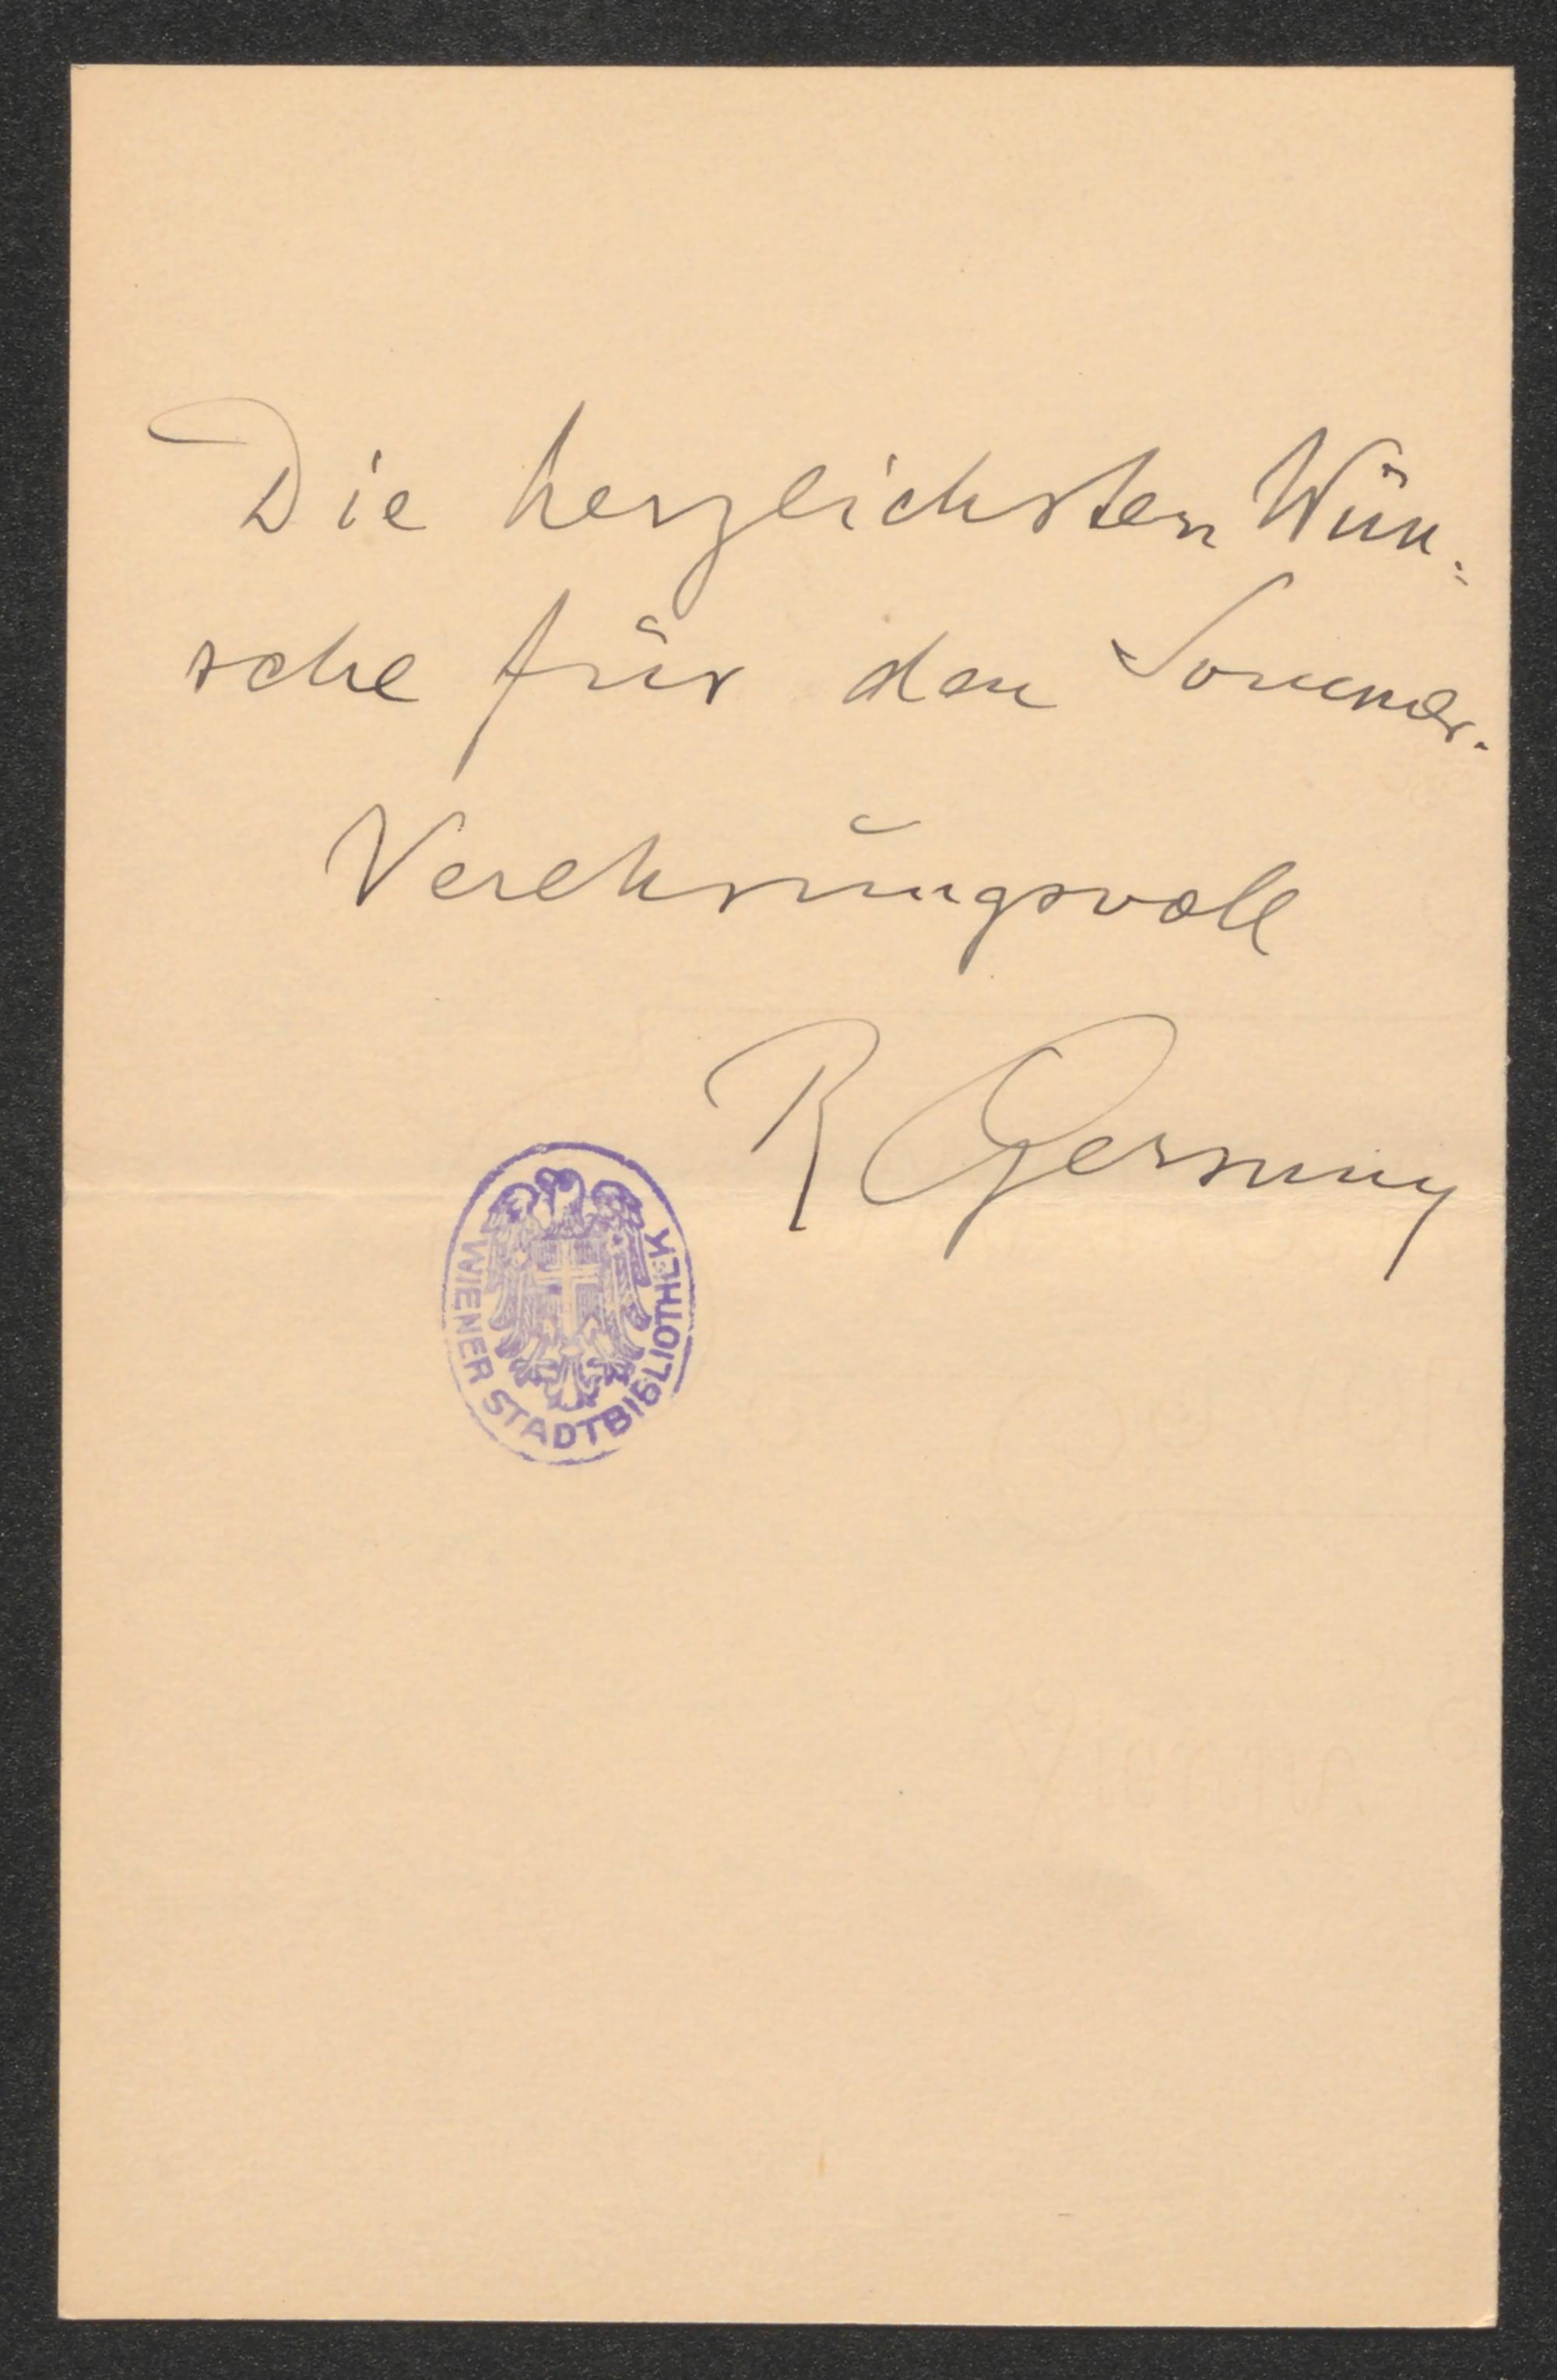 Die herzlichsten Wün:
sche für den Sommer.
Verehrungsvoll
R Gersuny
WIENER STADTBIBLIOTHEK